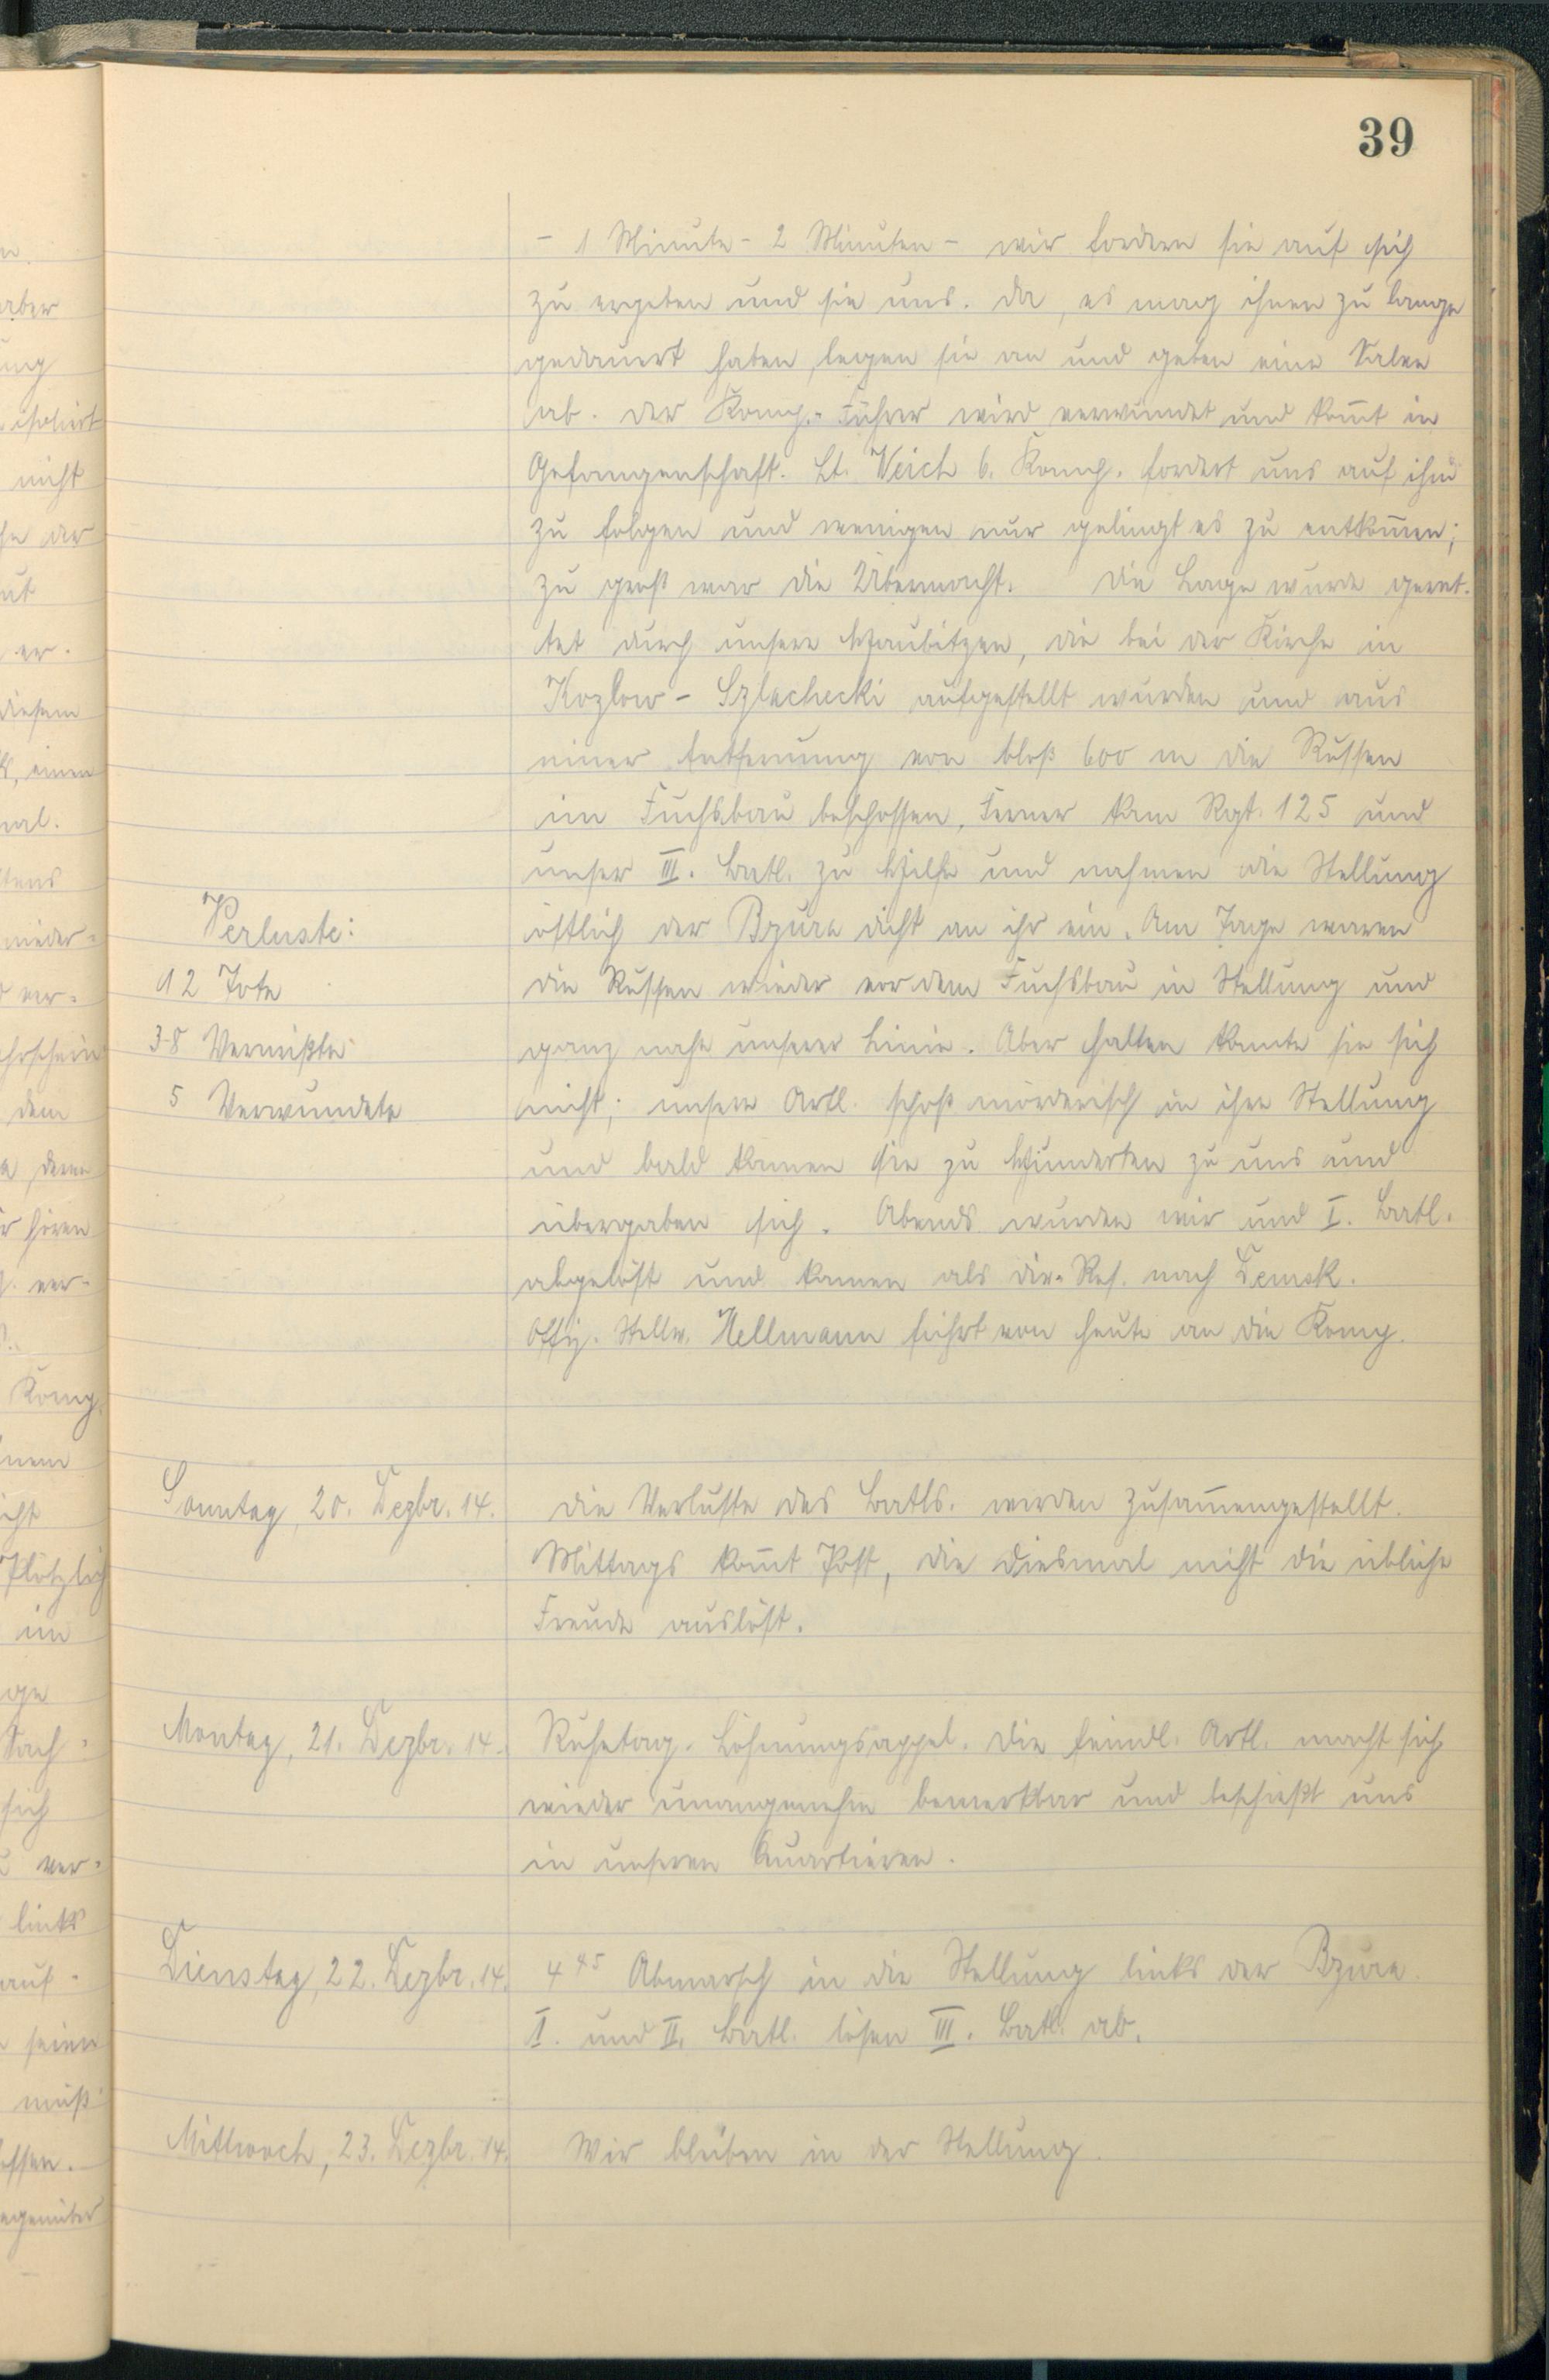 39
– 1 Minute – 2 Minuten – wir fordern sie auf sich
zu ergeben und sie uns. Da, es mag ihnen zu lange
gedauert haben, legen sie an und geben eine Salve
ab. Der Komp.-Führer wird verwundet und kom̅t in
Gefangenschaft. Lt. Veich 6. Komp. fordert uns auf ihm
zu folgen und wenigen nur gelingt es zu entkom̅en;
zu groß war die Übermacht. Die Lage wurde geret-
tet durch unsere Haubitzen, die bei der Kirche in
Kozlow – Szlachecki aufgestellt wurden und aus
einer Entfernung von bloß 600 m die Russen
im Fuchsbau beschossen. Ferner kam Rgt. 125 und
unser III. Batl. zu Hilfe und nahmen die Stellung
östlich der Bzura dicht an ihr ein. Am Tage waren
die Russen wieder vor dem Fuchsbau in Stellung und
ganz nahe unserer Linie. Aber halten konnte sie sich
nicht; unsere Artl. schoß mörderisch in ihre Stellung
und bald kamen sie zu Hunderten zu uns und
übergaben sich. Abends wurden wir und I. Batl.
abgelöst und kamen als Div.-Res. nach Zemsk.
Offz. Stellv. Hellmann führt von heute an die Komp.
Verluste:
12 Tote
38 Vermißte
5 Verwundete
Sonntag, 20. Dezbr. 14.
Die Verluste des Batls. werden zusam̅engestellt.
Mittags kom̅t Post, die diesmal nicht die übliche
Freude auslöst.
Montag, 21. Dezbr. 14.
Ruhetag. Löhnungsappel. Die feindl. Artl. macht sich
wieder unangenehm bemerkbar und beschießt uns
in unseren Quartieren.
Dienstag, 22. Dezbr. 14.
4 45 Abmarsch in die Stellung links der Bzura.
I. und II. Batl. lösen III. Batl. ab.
Mittwoch, 23. Dezbr. 14.
Wir bleiben in der Stellung.